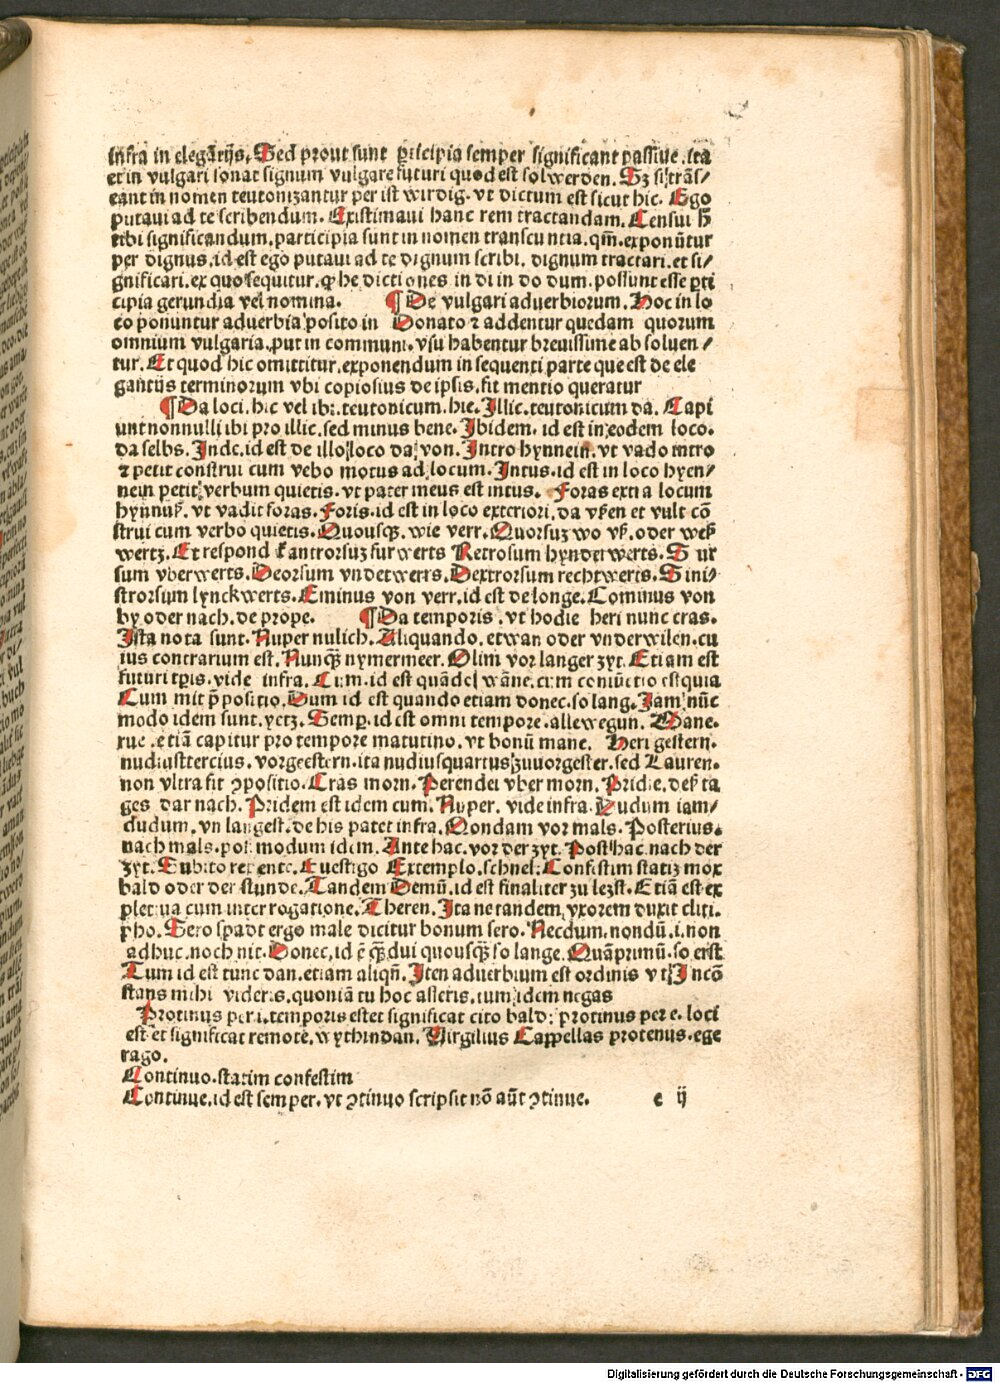 infra in elegãtijs. Sed prout sunt p̲ticipia semper significant passiue. ita
et in vulgari sonat signum vulgare futuri quod est sol werden. Sz si trãs/
eant in nomen teutonizantur per ist wirdig. vt dictum est sicut hic. Ego
putaui ad te scribendum. Existimaui hanc rem tractandam. Censui h̄
tibi significandum, participia sunt in nomen transeuntia. qm̄. exponũtur
per dignus. id est ego putaui ad te dignum scribi. dignum tractari. et si/
gnificari. ex quo sequitur. ꝙ he dictiones in di in do dum. possunt esse p̲ti
cipia gerundia vel nomina. ¶ De vulgari aduerbiorum. Hoc in lo
co ponuntur aduerbia posito in Donato ⁊ addentur quedam quorum
omnium vulgaria. put in communi. vsu habentur breuissime absoluen/
tur. Et quod hic omittitur. exponendum in sequenti parte que est de ele
gantijs terminorum vbi copiosius de ipsis. fit mentio queratur
¶ Da loci. hic vel ibi. teutonicum. hie. Illic. teutonicum da. Capi
unt nonnulli ibi pro illic. sed minus bene. Ibidem. id est in eodem loco.
da selbs. Inde. id est de illo loco da von. Intro hynnein. vt vado intro
⁊ petit construi cum vebo motus ad locum. Intus. id est in loco hyen/
nein petit verbum quietis. vt pater meus est intus. Foras extra locum
hynnuß. vt vadit foras. Foris. id est in loco exteriori. da vßen et vult cõ
strui cum verbo quietis. Quousqꝫ. wie verr. Quorsuz wo vß. oder weß
wertz. Et respond t̃ antrorsuz furwerts Retrosum hynderwerts. S ur
sum vberwerts. Deorsum vnderwerts. Dextrorsum rechtwerts. Sini/
strorsum lynckwerts. Eminus von verr. id est de longe. Cominus von
by oder nach. de prope. ¶ Da temporis. vt hodie heri nunc cras.
Ista nota sunt. Nuper nulich. Aliquando. etwan oder vnderwilen. cu
ius contrarium est. Nunqꝫ nymermeer. Olim vor langer zyt. Etiam est
futuri tp̄is. vide infra. Cum. id est quãdo wãne. cum coniũctio est quia
Cum mit p̄positio. Dum id est quando etiam donec. so lang. Iam nũc
modo idem sunt. yetz. Semp̲. id est omni tempore. allewegun. Mane.
rue. etiã capitur pro tempore matutino. vt bonũ mane. Heri gestern.
nudiustertcius. vorgeestern. ita nudiusquartus zuuorgester. sed Lauren.
non vltra fit ꝯpositio. Cras morn. Perendei vber morn. Pridie. deß ta
ges dar nach. Pridem est idem cum. Nuper. vide infra. Dudum iam/
dudum. vn langest. de his patet infra. Qondam vor mals. Posterius.
nach mals. post modum idem. Ante hac. vor der zyt. Post hac. nach der
zyt. Subito repente. Euestigo Extemplo. schnel. Confestim statiz mox
bald oder der stunde. Tandem Demũ. id est finaliter zu lezst. Etiã est ex
pletiua cum interrogatione. Theren. Ita ne tandem yxorem duxit cliti.
pho. Sero spadt ergo male dicitur bonum sero. Necdum. nondũ. i. non
adhuc. noch nit. Donec. id ē qꝫdui quousqꝫ so lange. Quãprimũ. so erst
Tum id est tunc dan. etiam aliqñ. Iten aduerbium est ordinis vt Incõ
stans mihi videris. quoniã tu hoc asseris. tum idem negas
Protinus per i. temporis est et significat cito bald: protinus per e. loci
est et significat remote. wythindan. Virgilius Cappellas protenus. ege
rago.
Continuo. statim confestim
Continue. id est semper. vt ꝯtinuo scripsit nõ aũt ꝯtinue. e ij
Digitalisierung gefördert durch die Deutsche Forschungsgemeinschaft - DFG